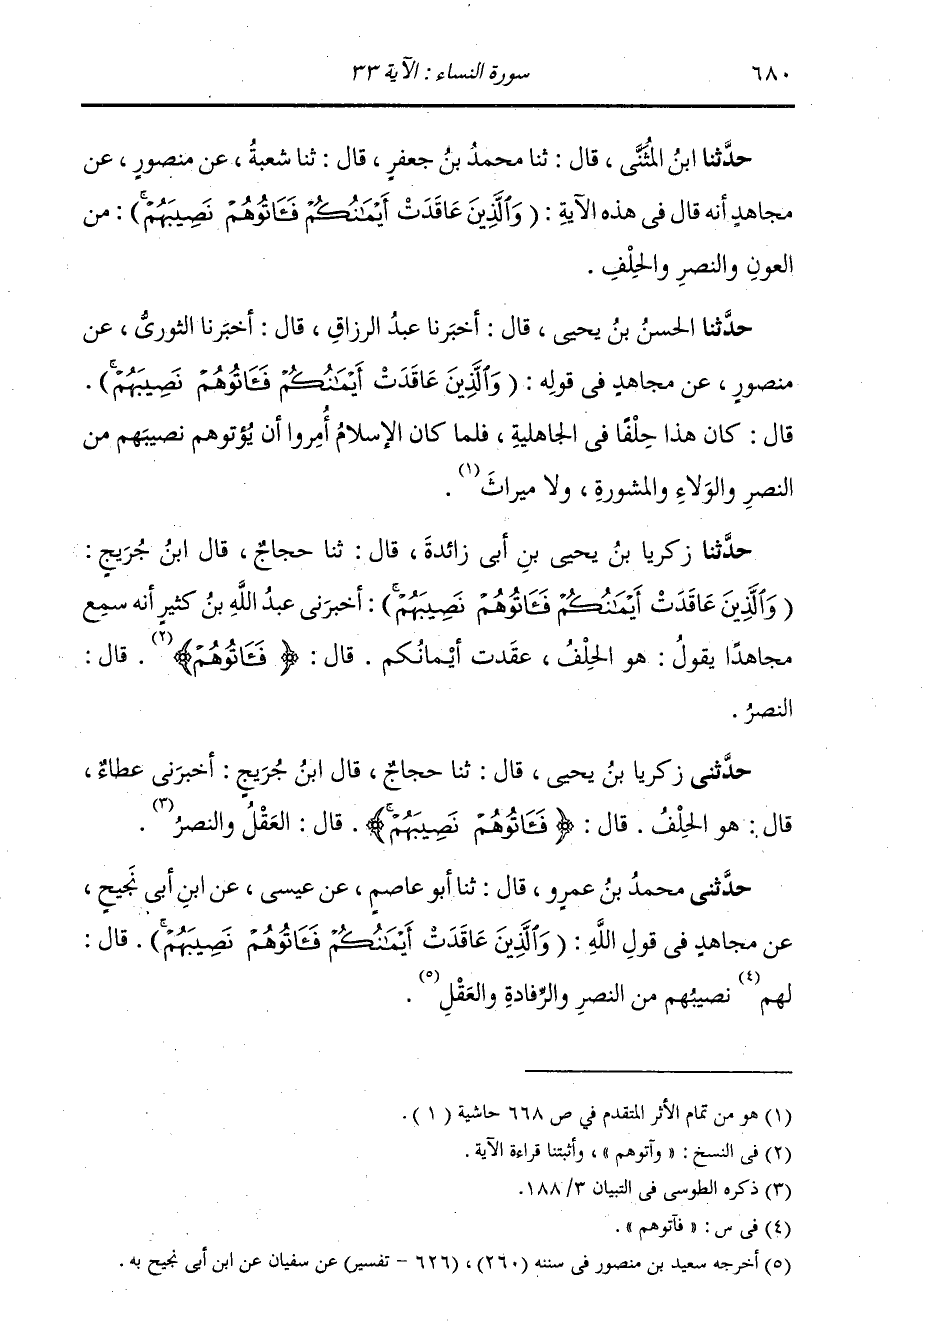 ٦٨٠ سورة النساء : الآية ٣٣
حدَّثنا ابنُ المُثَنَّى ، قال : ثنا محمدُ بنُ جعفرٍ ، قال : ثنا شعبةُ ، عن منصورٍ ، عن
مجاهدٍ أنه قال فى هذه الآيةِ : ( وَٱلَّذِينَ عَاقَدَتْ أَيْمَٰنُكُمْ فَـَٔاتُوهُمْ نَصِيبَهُمْۚ ) : من
العونِ والنصرِ والحِلْفِ .
حدَّثنا الحسنُ بنُ يحيى ، قال : أخبَرنا عبدُ الرزاقِ ، قال : أخبَرنا الثورىُّ ، عن
منصورٍ ، عن مجاهدٍ فى قولِه : ( وَٱلَّذِينَ عَاقَدَتْ أَيْمَٰنُكُمْ فَـَٔاتُوهُمْ نَصِيبَهُمْۚ ) .
قال : كان هذا حِلْفًا فى الجاهليةِ ، فلما كان الإسلامُ أُمِروا أن يُؤتوهم نصيبَهم من
النصرِ والوَلاءِ والمشورةِ ، ولا ميراثَ(١) .
حدَّثنا زكريا بنُ يحيى بنِ أبى زائدةَ ، قال : ثنا حجاجٌ ، قال ابنُ جُرَيجٍ :
( وَٱلَّذِينَ عَاقَدَتْ أَيْمَٰنُكُمْ فَـَٔاتُوهُمْ نَصِيبَهُمْۚ ) : أخبرَنى عبدُ اللَّهِ بنُ كثيرٍ أنه سمِع
مجاهدًا يقولُ : هو الحِلْفُ ، عقَدت أيْمانُكم . قال : ﴿ فَـَٔاتُوهُمْ ﴾(٢) . قال :
النصرُ .
حدَّثنى زكريا بنُ يحيى ، قال : ثنا حجاجٌ ، قال ابنُ جُرَيجٍ : أخبرَنى عطاءٌ ،
قال : هو الحِلْفُ . قال : ﴿ فَـَٔاتُوهُمْ نَصِيبَهُمْۚ ﴾ . قال : العَقْلُ والنصرُ(٣) .
حدَّثنى محمدُ بنُ عمرٍو ، قال : ثنا أبو عاصمٍ ، عن عيسى ، عن ابنِ أبى نَجيحٍ ،
عن مجاهدٍ فى قولِ اللَّهِ : ( وَٱلَّذِينَ عَاقَدَتْ أَيْمَٰنُكُمْ فَـَٔاتُوهُمْ نَصِيبَهُمْۚ ) . قال :
لهم(٤) نصيبُهم من النصرِ والرِّفادةِ والعَقْلِ(٥) .
(١) هو من تمام الأثر المتقدم في ص ٦٦٨ حاشية ( ١ ) .
(٢) فى النسخ : « وآتوهم » ، وأثبتنا قراءة الآية .
(٣) ذكره الطوسى فى التبيان ٣/ ١٨٨.
(٤) فى س : « فآتوهم » .
(٥) أخرجه سعيد بن منصور فى سننه (٢٦٠) ، (٦٢٦ - تفسير) عن سفيان عن ابن أبى نجيح به .